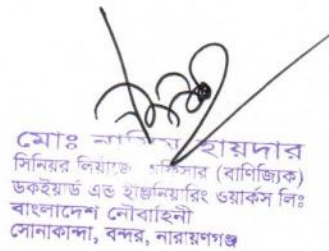 মোঃ হায়দার
সিনিয়র লিয়াজো অফিসার (বাণিজ্যিক)
ডকইয়ার্ড এন্ড ইঞ্জিনিয়ারিং ওয়ার্কস লিঃ
বাংলাদেশ নৌবাহিনী
সোনাকান্দা, বন্দর, নারায়ণগঞ্জ